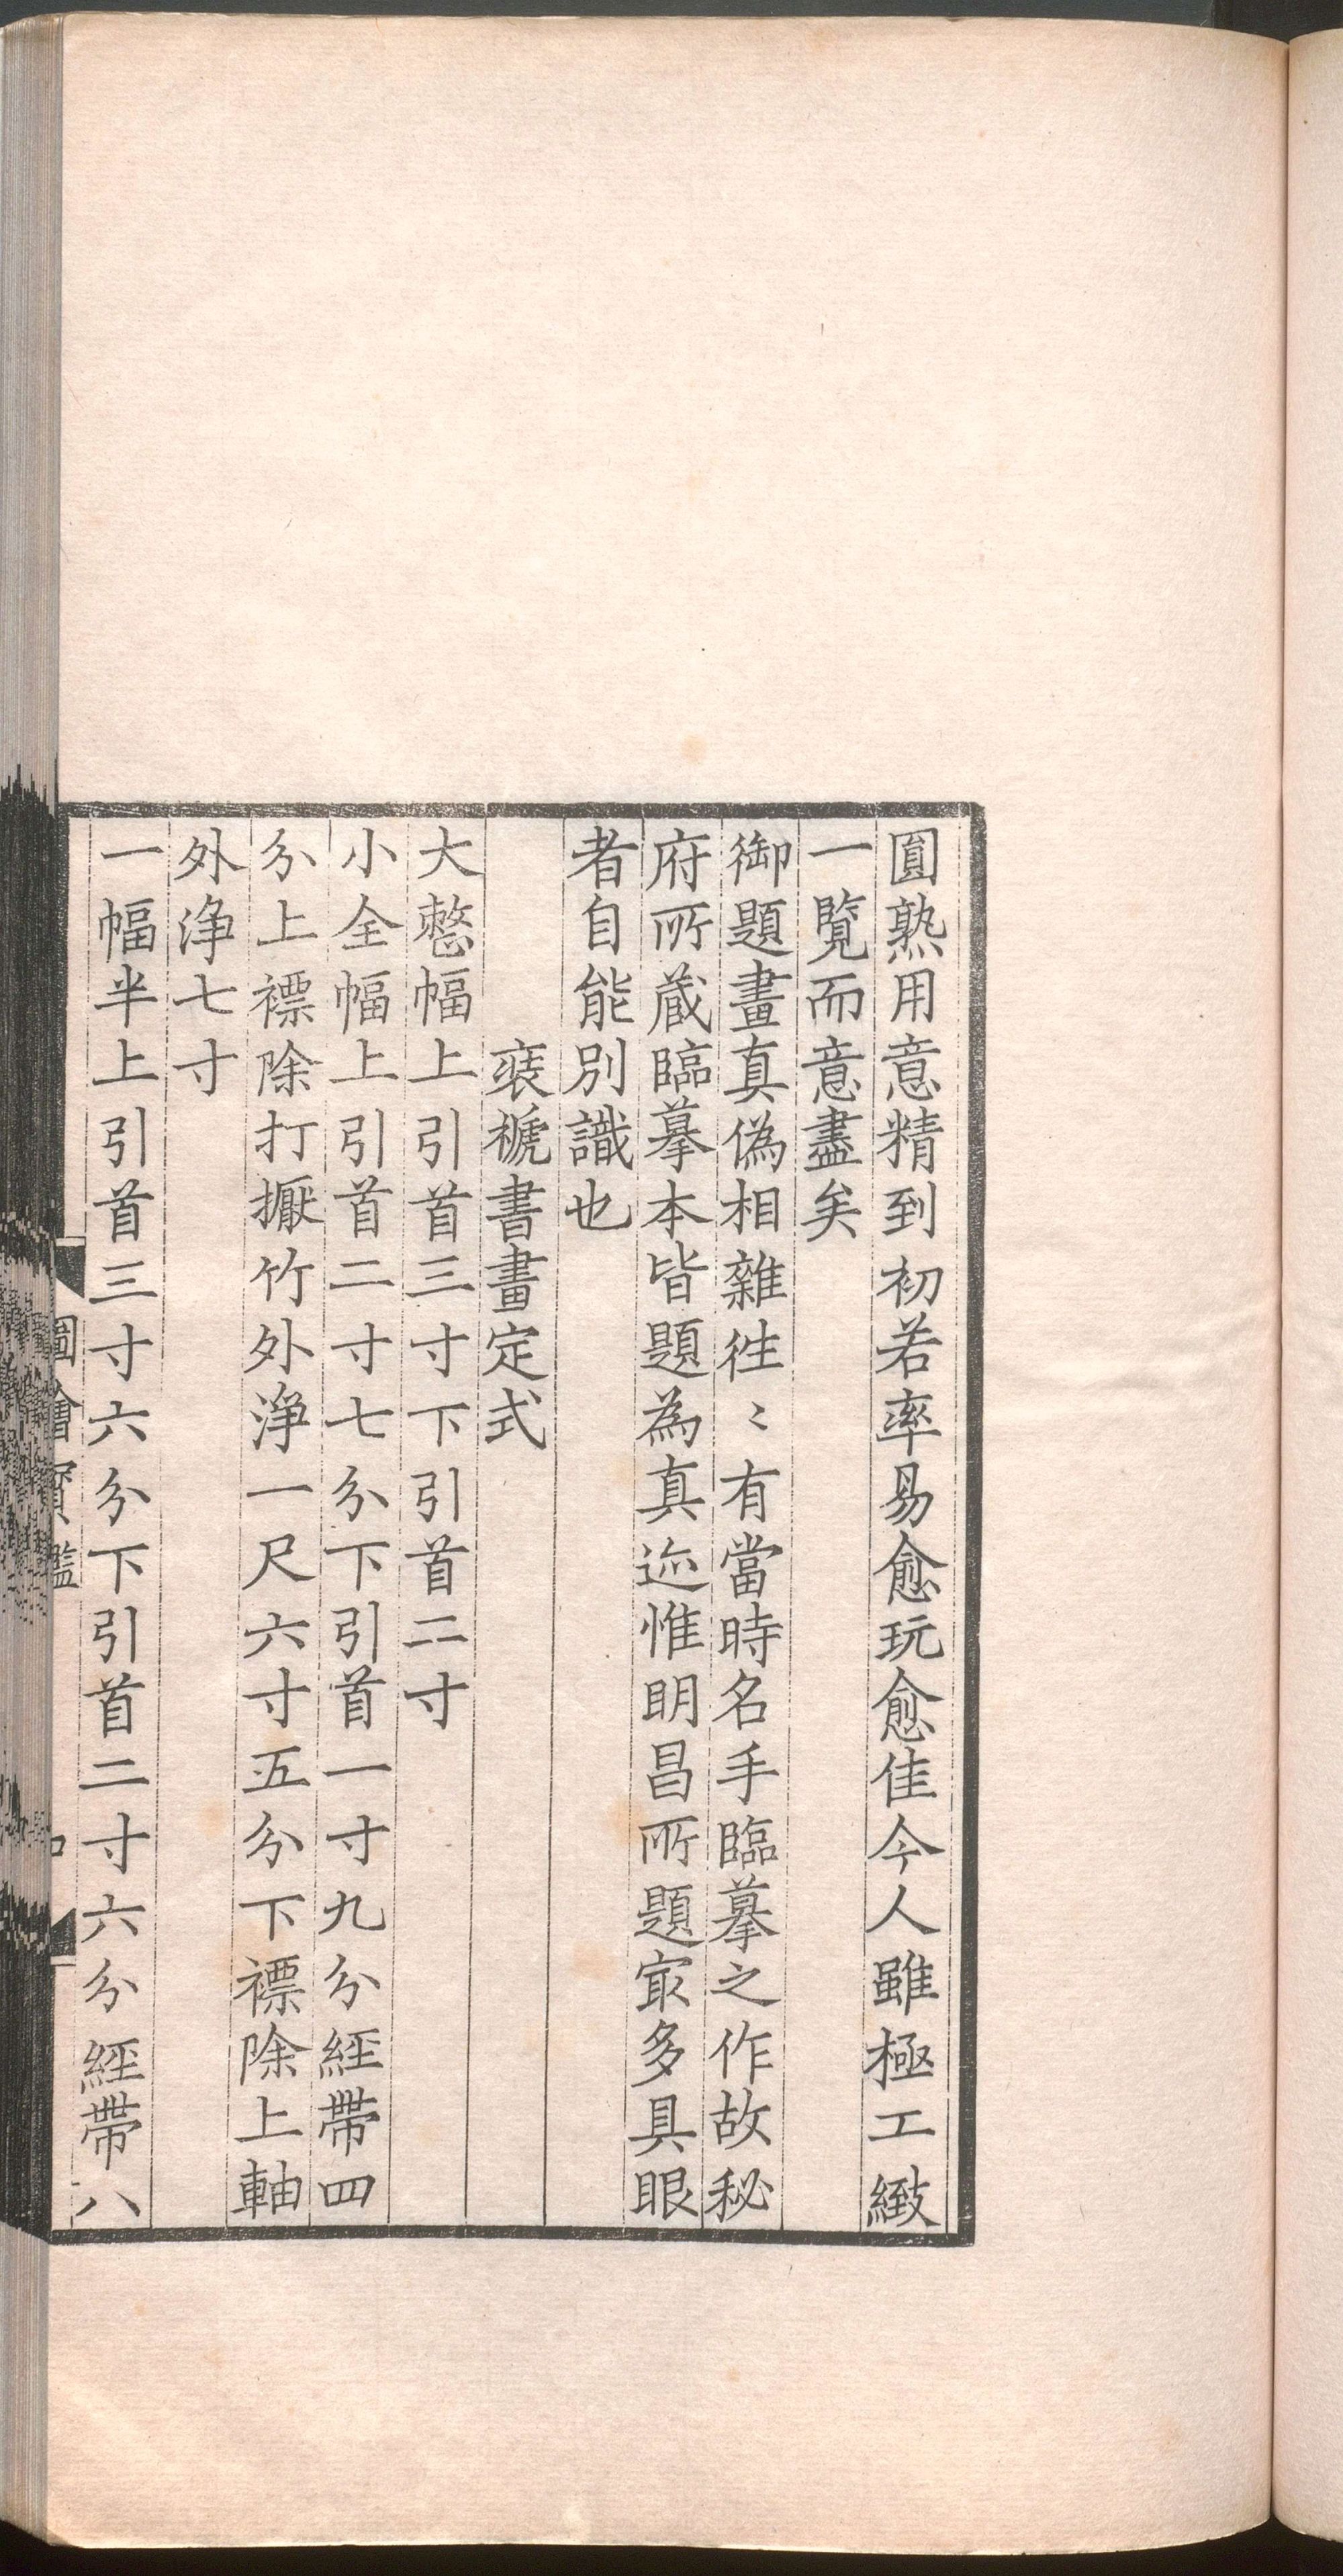 圓熟用意精到初若率易愈玩愈佳今人雖極工緻
一覧而意盡矣
御題畫真偽相雜徃〻有當時名手臨摹之作故秘
府所蔵臨摹本皆題為真迹惟明昌所題冣多具眼
者自能別識也
裝褫書畫定式
大整幅上引首三寸下引首二寸
小全幅上引首二寸七分下引首一寸九分經帶四
分上褾除打擫竹外浄一尺六寸五分下褾除上軸
外浄七寸
一幅半上引首三寸六分下引首二寸六分經帶八
圖繪寶鑑